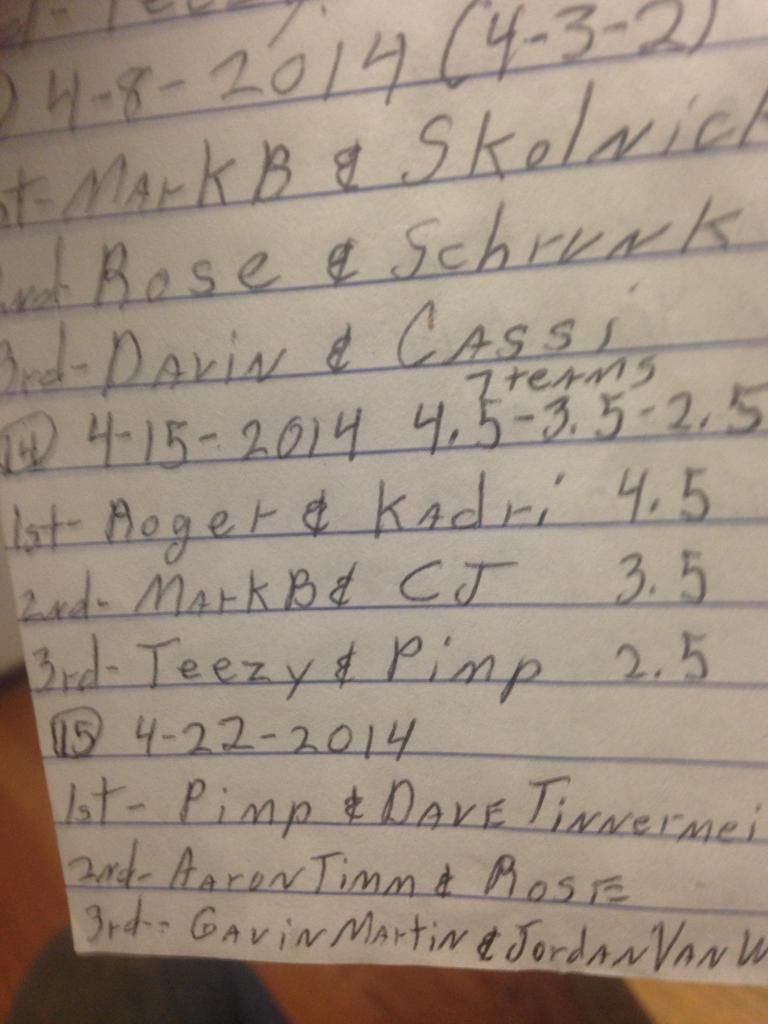 Teezy
) 4-8-2014 (4-3-2)
st- MArK B & SKolNick
2nd Rose & SchruNK
3rd- DAViN & CAssi
7 teAMS
(14) 4-15-2014 4.5-3.5-2.5
1st- Roger & KAdri 4.5
2nd- MArKB & CJ 3.5
3rd- Teezy & Pimp 2.5
(15) 4-22-2014
1st- Pimp & DAVE TiNNermei
2nd- AAroN Timm & ROSE
3rd- GAViN MArtiN & JordAN VAN W